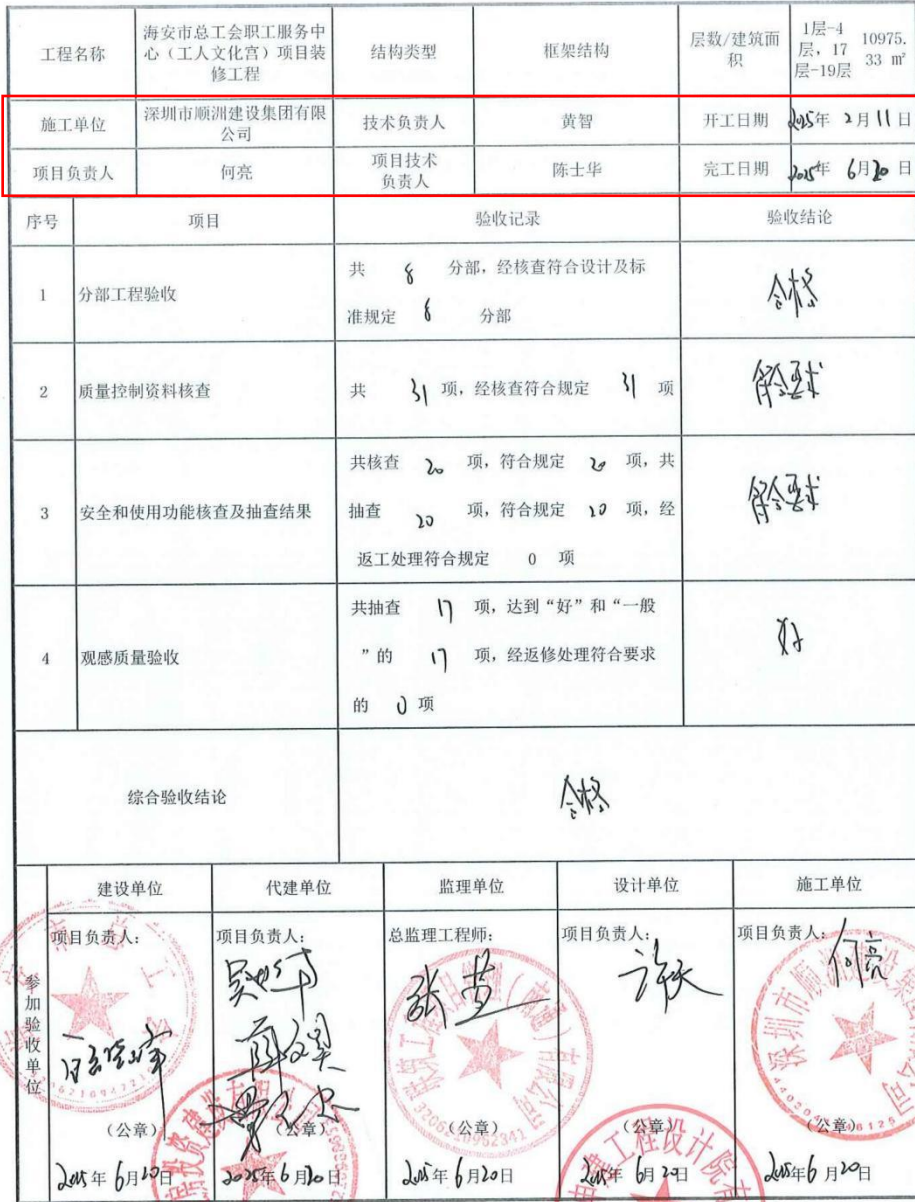 工程名称
海安市总工会职工服务中
心（工人文化宫）项目装
修工程
结构类型
框架结构
层数/建筑面
积
1层-4
层，17
层-19层
10975.
33 m²
施工单位
深圳市顺洲建设集团有限
公司
技术负责人
黄智
开工日期
2025年 2月11日
项目负责人
何亮
项目技术
负责人
陈士华
完工日期
2025年 6月20日
序号
项目
验收记录
验收结论
1
分部工程验收
共 8 分部，经核查符合设计及标
准规定 8 分部
合格
2
质量控制资料核查
共 31 项，经核查符合规定 31 项
符合要求
3
安全和使用功能核查及抽查结果
共核查 20 项，符合规定 20 项，共
抽查 20 项，符合规定 20 项，经
返工处理符合规定 0 项
符合要求
4
观感质量验收
共抽查 17 项，达到“好”和“一般
”的 17 项，经返修处理符合要求
的 0 项
好
综合验收结论
合格
参加验收单位
建设单位
代建单位
监理单位
设计单位
施工单位
项目负责人：
项目负责人：
总监理工程师：
项目负责人：
项目负责人：
何亮
（公章）
（公章）
（公章）
（公章）
（公章）
2025年6月20日
2025年6月20日
2025年6月20日
2025年6月20日
2025年6月20日